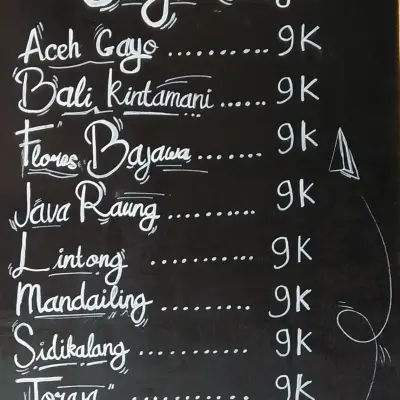 Aceh Gayo .......... 9K
Bali Kintamani ...... 9K
Flores Bajawa ....... 9K
Java Raung .......... 9K
Lintong ........... 9K
Mandailing .......... 9K
Sidikalang .......... 9K
Toraja .......... 9K